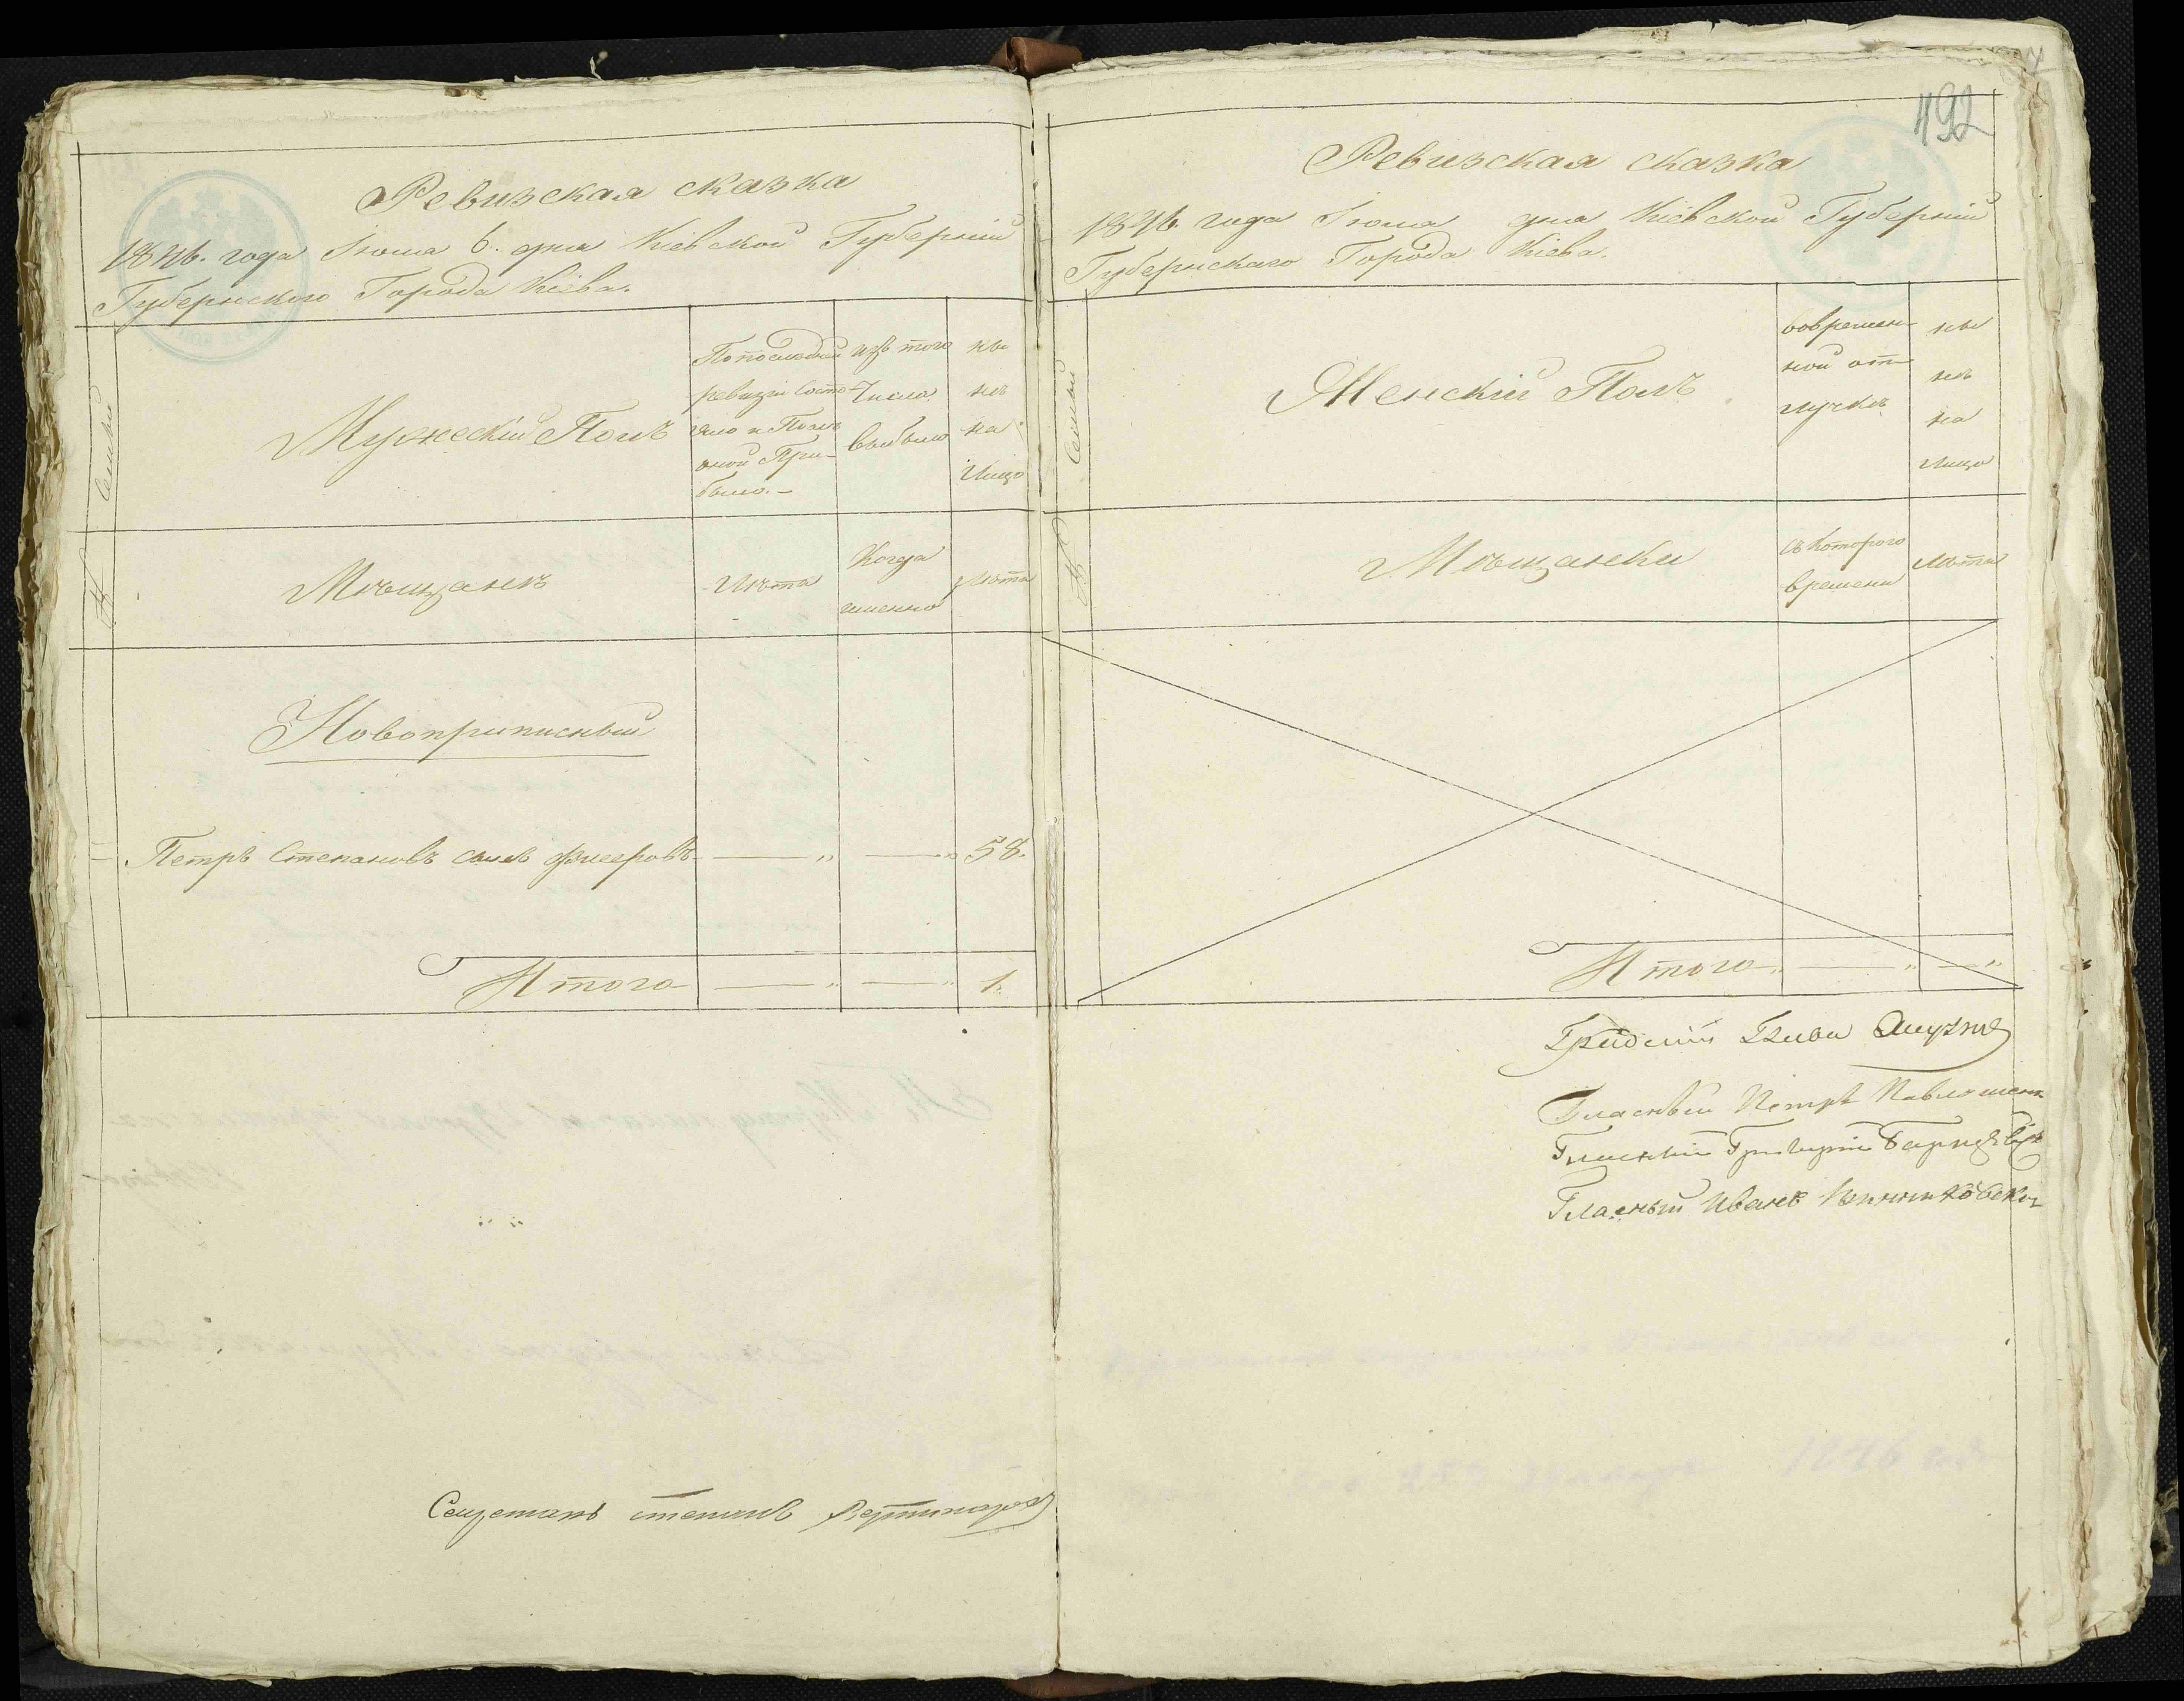 Ревизская сказка
1846. года Іюля 6. дня Кіевской Губерніи
Губернского Города Кіева.
№ Семьи
Мужескій Полъ
По последней
ревизіи состо-
яло и После
оной При-
было.
изъ того
Числа
выбыло
ны
нѣ
на
лицо
Мѣщанъ
Лѣта
Когда
именно
Лѣта
Новоприписный
Петръ Степановъ сынъ 58.
Итого 1.
Семен
492
Ревизская сказка
1846. года Іюля дня Кіевской Губерніи
Губернскаго Города Кіева.
№ Семьи
Женскій Полъ
вовремен-
ной от-
лучкѣ
ны
нѣ
на
лицо
Мѣщанки
съ Которого
времени
Лѣта
Итого
Градскій Глава
Гласный Петръ
Гласный Григорій
Гласный Иванъ